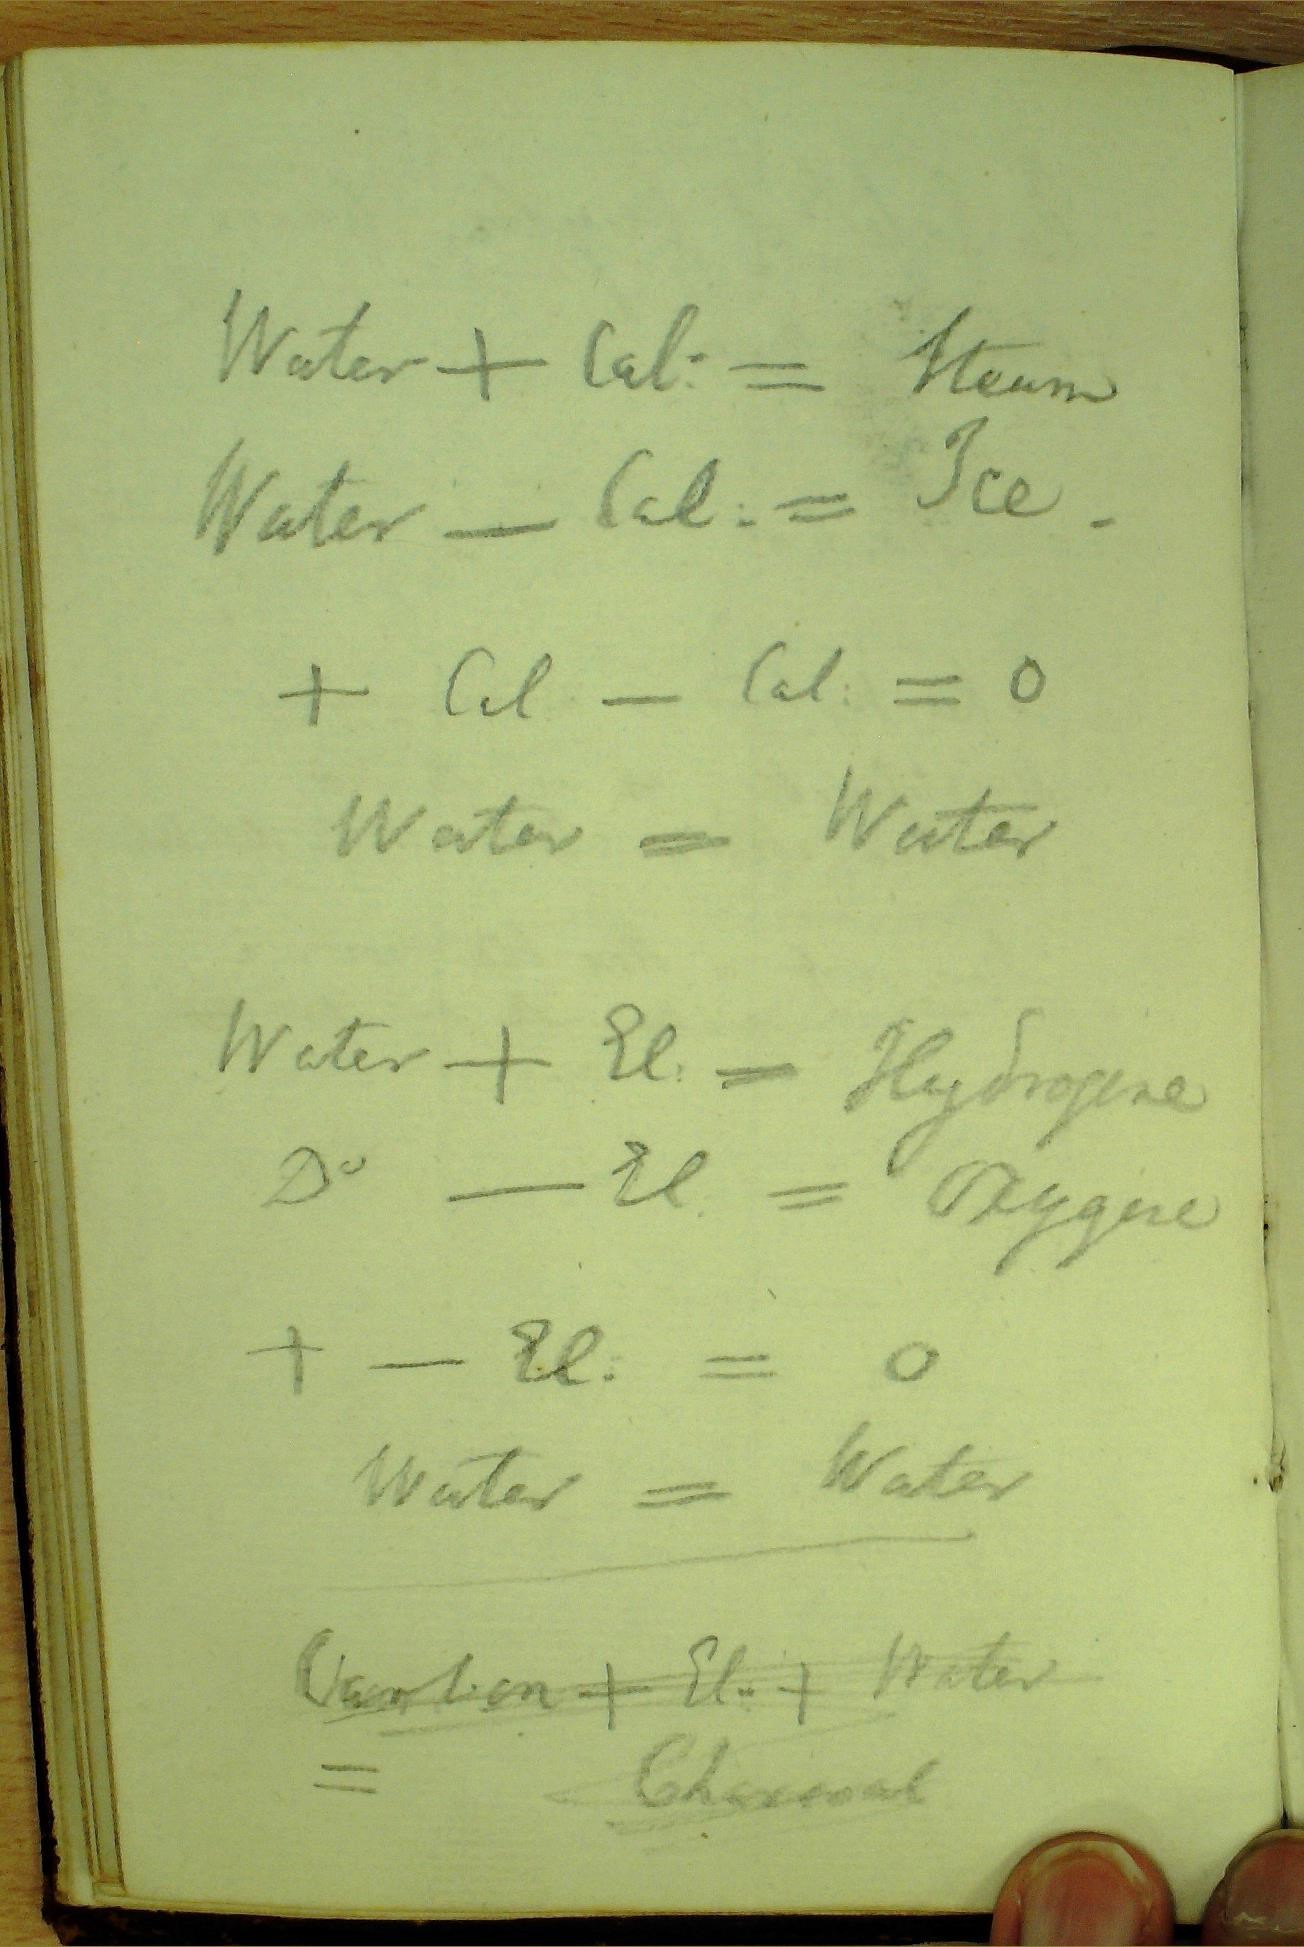 Water + Cal: = Steam
Water — Cal: = Ice.
+ Cal — Cal: = 0
Water = Water
Water + El: = Hydrogene
Do — El. = Oxygene
+ — El: = 0
Water = Water
Carbon + El: + Water
= Charcoal